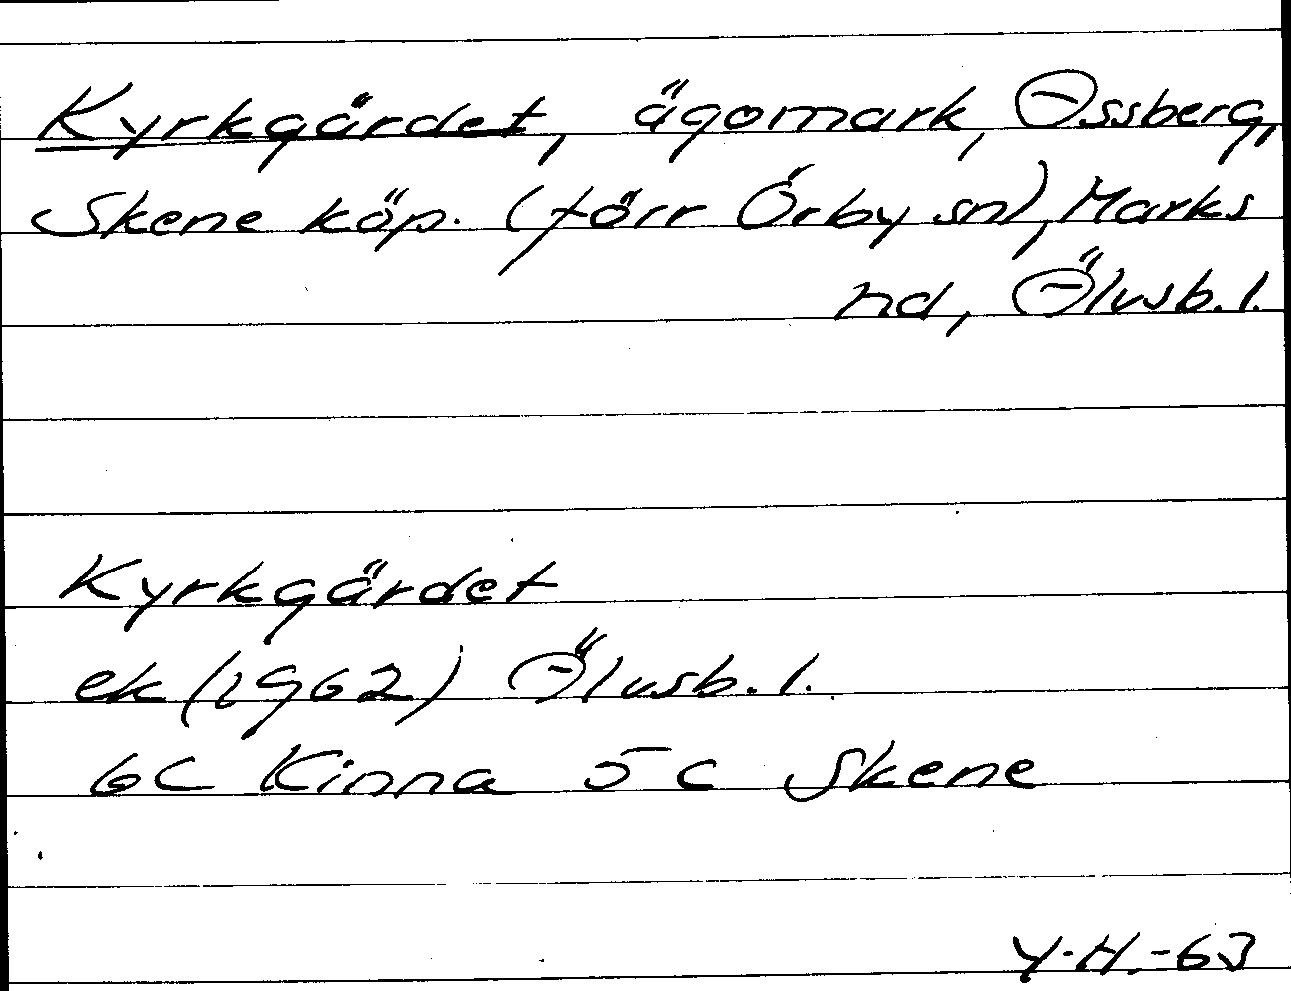 Kyrkgärdet, ägomark, Assberg,
Skene köp. (förr Örby sn), Marks
hd, Älvsb. l.
Kyrkgärdet
ek (1962) Älvsb. l.
6C Kinna 5 c Skene
Y.H.-63